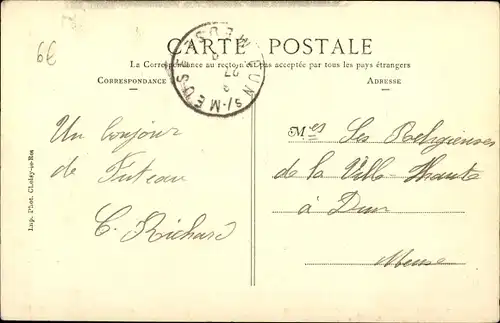 69
CARTE POSTALE
La Correspondance au recto n'est pas acceptée par tous les pays étrangers
CORRESPONDANCE
ADRESSE
DUN s/ MEUSE
MEUSE
Un bonjour
de Futeau
C. Richard
Mes Les Religieuses
de la Ville-Haute
à Dun
Meuse
Imp. Phot. CLolay-le-Ros